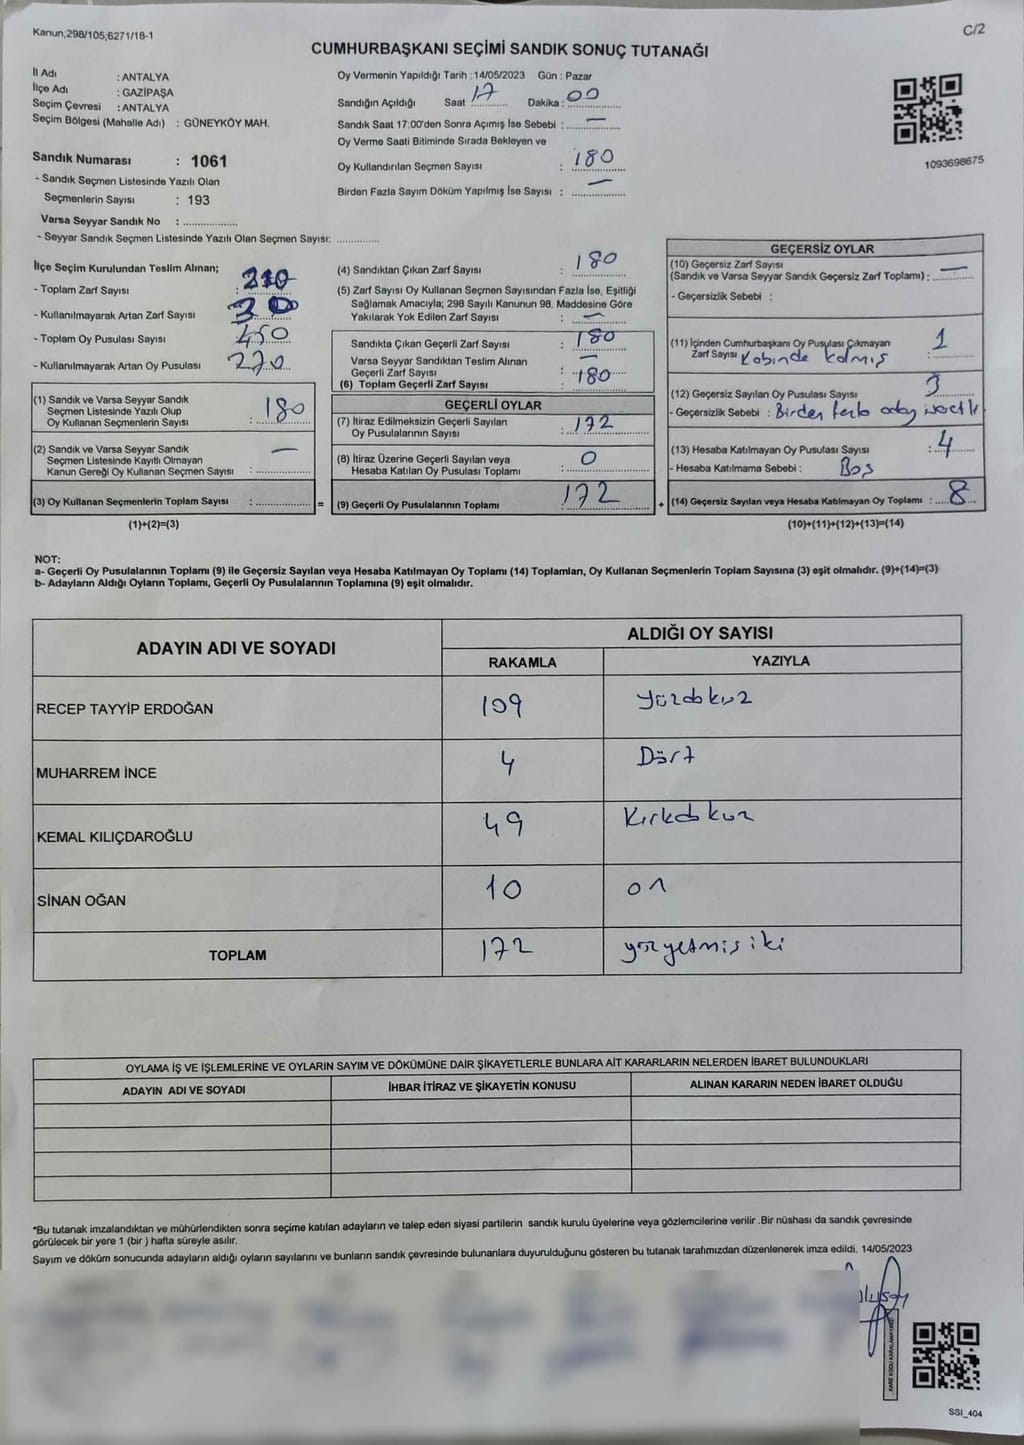 Kanun;298/105;6271/18-1
C/2
CUMHURBAŞKANI SEÇİMİ SANDIK SONUÇ TUTANAĞI
İl Adı : ANTALYA
İlçe Adı : GAZİPAŞA
Seçim Çevresi : ANTALYA
Seçim Bölgesi (Mahalle Adı) : GÜNEYKÖY MAH.
Sandık Numarası : 1061
- Sandık Seçmen Listesinde Yazılı Olan
Seçmenlerin Sayısı : 193
Varsa Seyyar Sandık No : ................
- Seyyar Sandık Seçmen Listesinde Yazılı Olan Seçmen Sayısı: ............
Oy Vermenin Yapıldığı Tarih : 14/05/2023 Gün : Pazar
Sandığın Açıldığı Saat 17 Dakika : 00
Sandık Saat 17:00'den Sonra Açımış İse Sebebi : —
Oy Verme Saati Bitiminde Sırada Bekleyen ve
Oy Kullandırılan Seçmen Sayısı : 180
Birden Fazla Sayım Döküm Yapılmış İse Sayısı : —
1093698675
İlçe Seçim Kurulundan Teslim Alınan;
- Toplam Zarf Sayısı : 210
- Kullanılmayarak Artan Zarf Sayısı : 30
- Toplam Oy Pusulası Sayısı : 450
- Kullanılmayarak Artan Oy Pusulası : 270
(1) Sandık ve Varsa Seyyar Sandık
Seçmen Listesinde Yazılı Olup
Oy Kullanan Seçmenlerin Sayısı : 180
(2) Sandık ve Varsa Seyyar Sandık
Seçmen Listesinde Kayıtlı Olmayan
Kanun Gereği Oy Kullanan Seçmen Sayısı : —
(3) Oy Kullanan Seçmenlerin Toplam Sayısı : ................ =
(1)+(2)=(3)
(4) Sandıktan Çıkan Zarf Sayısı : 180
(5) Zarf Sayısı Oy Kullanan Seçmen Sayısından Fazla İse, Eşitliği
Sağlamak Amacıyla; 298 Sayılı Kanunun 98. Maddesine Göre
Yakılarak Yok Edilen Zarf Sayısı : —
Sandıkta Çıkan Geçerli Zarf Sayısı : 180
Varsa Seyyar Sandıktan Teslim Alınan
Geçerli Zarf Sayısı : —
(6) Toplam Geçerli Zarf Sayısı : 180
GEÇERLİ OYLAR
(7) İtiraz Edilmeksizin Geçerli Sayılan
Oy Pusulalarının Sayısı : 172
(8) İtiraz Üzerine Geçerli Sayılan veya
Hesaba Katılan Oy Pusulası Toplamı : 0
(9) Geçerli Oy Pusulalarının Toplamı : 172 +
GEÇERSİZ OYLAR
(10) Geçersiz Zarf Sayısı
(Sandık ve Varsa Seyyar Sandık Geçersiz Zarf Toplamı) : —
- Geçersizlik Sebebi :
(11) İçinden Cumhurbaşkanı Oy Pusulası Çıkmayan
Zarf Sayısı Kabinde kalmış : 1
(12) Geçersiz Sayılan Oy Pusulası Sayısı : 3
- Geçersizlik Sebebi : Birden fazla aday işaretli
(13) Hesaba Katılmayan Oy Pusulası Sayısı : 4
- Hesaba Katılmama Sebebi : Boş
(14) Geçersiz Sayılan veya Hesaba Katılmayan Oy Toplamı : 8
(10)+(11)+(12)+(13)=(14)
NOT:
a- Geçerli Oy Pusulalarının Toplamı (9) ile Geçersiz Sayılan veya Hesaba Katılmayan Oy Toplamı (14) Toplamları, Oy Kullanan Seçmenlerin Toplam Sayısına (3) eşit olmalıdır. (9)+(14)=(3)
b- Adayların Aldığı Oyların Toplamı, Geçerli Oy Pusulalarının Toplamına (9) eşit olmalıdır.
ADAYIN ADI VE SOYADI ALDIĞI OY SAYISI
RAKAMLA YAZIYLA
RECEP TAYYİP ERDOĞAN 109 Yüzdokuz
MUHARREM İNCE 4 Dört
KEMAL KILIÇDAROĞLU 49 Kırkdokuz
SİNAN OĞAN 10 on
TOPLAM 172 yüzyetmişiki
OYLAMA İŞ VE İŞLEMLERİNE VE OYLARIN SAYIM VE DÖKÜMÜNE DAİR ŞİKAYETLERLE BUNLARA AİT KARARLARIN NELERDEN İBARET BULUNDUKLARI
ADAYIN ADI VE SOYADI İHBAR İTİRAZ VE ŞİKAYETİN KONUSU ALINAN KARARIN NEDEN İBARET OLDUĞU
*Bu tutanak imzalandıktan ve mühürlendikten sonra seçime katılan adayların ve talep eden siyasi partilerin sandık kurulu üyelerine veya gözlemcilerine verilir .Bir nüshası da sandık çevresinde
görülecek bir yere 1 (bir ) hafta süreyle asılır.
Sayım ve döküm sonucunda adayların aldığı oyların sayılarını ve bunların sandık çevresinde bulunanlara duyurulduğunu gösteren bu tutanak tarafımızdan düzenlenerek imza edildi. 14/05/2023
SSI_404